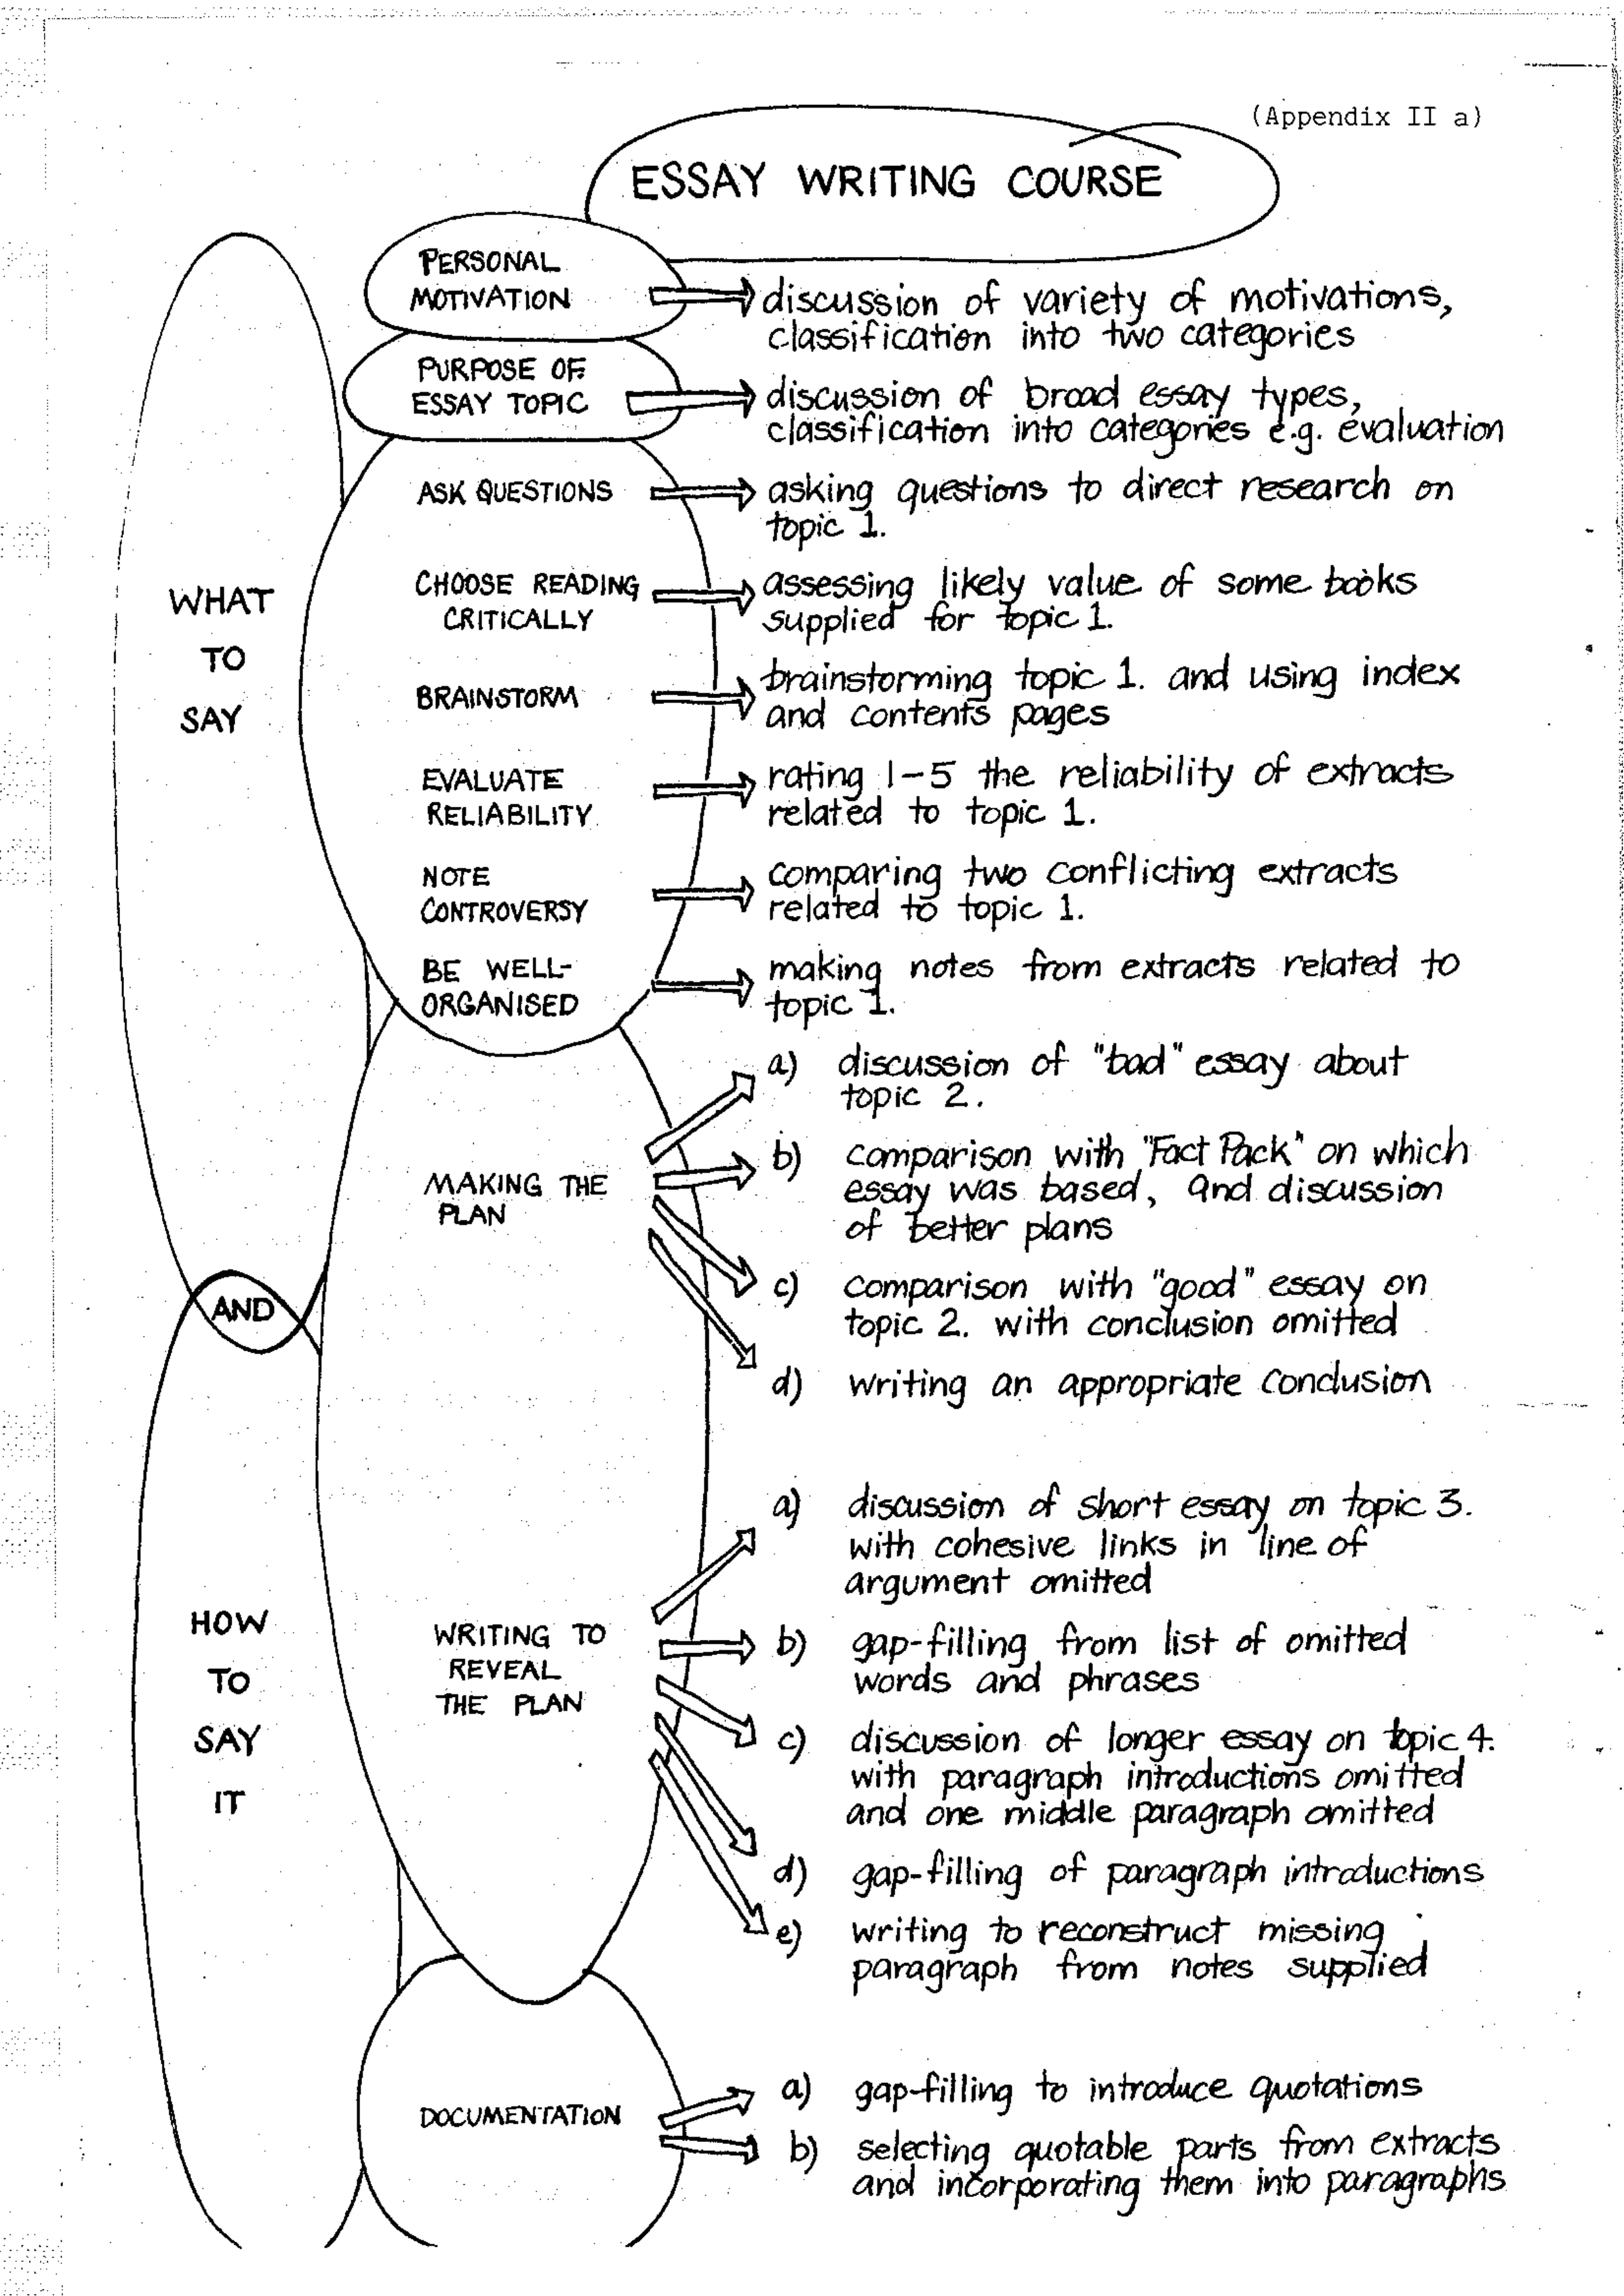 (Appendix II a)
ESSAY WRITING COURSE
PERSONAL
MOTIVATION
discussion of variety of motivations,
classification into two categories
PURPOSE OF
ESSAY TOPIC
discussion of broad essay types,
classification into categories e.g. evaluation
ASK QUESTIONS
asking questions to direct research on
topic 1.
WHAT
TO
SAY
CHOOSE READING
CRITICALLY
assessing likely value of some books
supplied for topic 1.
BRAINSTORM
brainstorming topic 1. and using index
and contents pages
EVALUATE
RELIABILITY
rating 1-5 the reliability of extracts
related to topic 1.
NOTE
CONTROVERSY
comparing two conflicting extracts
related to topic 1.
BE WELL-
ORGANISED
making notes from extracts related to
topic 1.
MAKING THE
PLAN
a) discussion of "bad" essay about
topic 2.
b) comparison with "Fact Pack" on which
essay was based, and discussion
of better plans
c) comparison with "good" essay on
topic 2. with conclusion omitted
d) writing an appropriate conclusion
AND
HOW
TO
SAY
IT
WRITING TO
REVEAL
THE PLAN
a) discussion of short essay on topic 3.
with cohesive links in line of
argument omitted
b) gap-filling from list of omitted
words and phrases
c) discussion of longer essay on topic 4.
with paragraph introductions omitted
and one middle paragraph omitted
d) gap-filling of paragraph introductions
e) writing to reconstruct missing
paragraph from notes supplied
DOCUMENTATION
a) gap-filling to introduce quotations
b) selecting quotable parts from extracts
and incorporating them into paragraphs